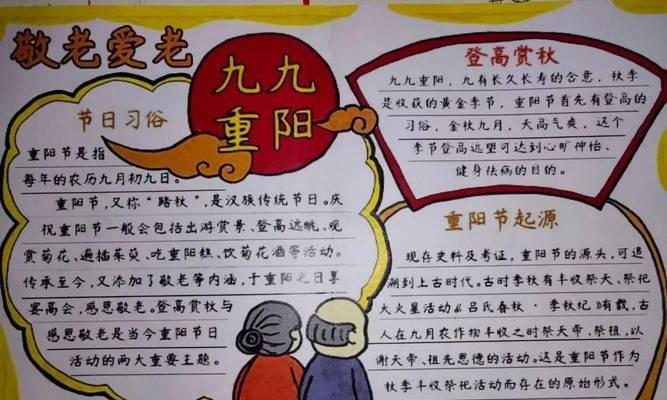 敬老爱老
九九
重阳
节日习俗
重阳节是指
每年的农历九月初九日。
重阳节,又称“踏秋”,是汉族传统节日。庆
祝重阳节一般会包括出游赏景、登高远眺、观
赏菊花、遍插茱萸、吃重阳糕、饮菊花酒等活动。
传承至今,又添加了敬老等内涵,于重阳之日享
宴高会,感恩敬老。登高赏秋与
感恩敬老是当今重阳节日
活动的两大重要主题。
登高赏秋
九九重阳,九有长久长寿的含意,秋季
是收获的黄金季节,重阳节首先有登高的
习俗,金秋九月,天高气爽,这个
季节登高远望可达到心旷神怡、
健身祛病的目的。
重阳节起源
现存史料及考证,重阳节的源头,可追
溯到上古时代。古时季秋有丰收祭天、祭祀
大火星活动《吕氏春秋·季秋纪》有载,古
人在九月农作物丰收之时祭天帝、祭祖,以
谢天帝、祖先恩德的活动。这是重阳节作为
秋季丰收祭祀活动而存在的原始形式。